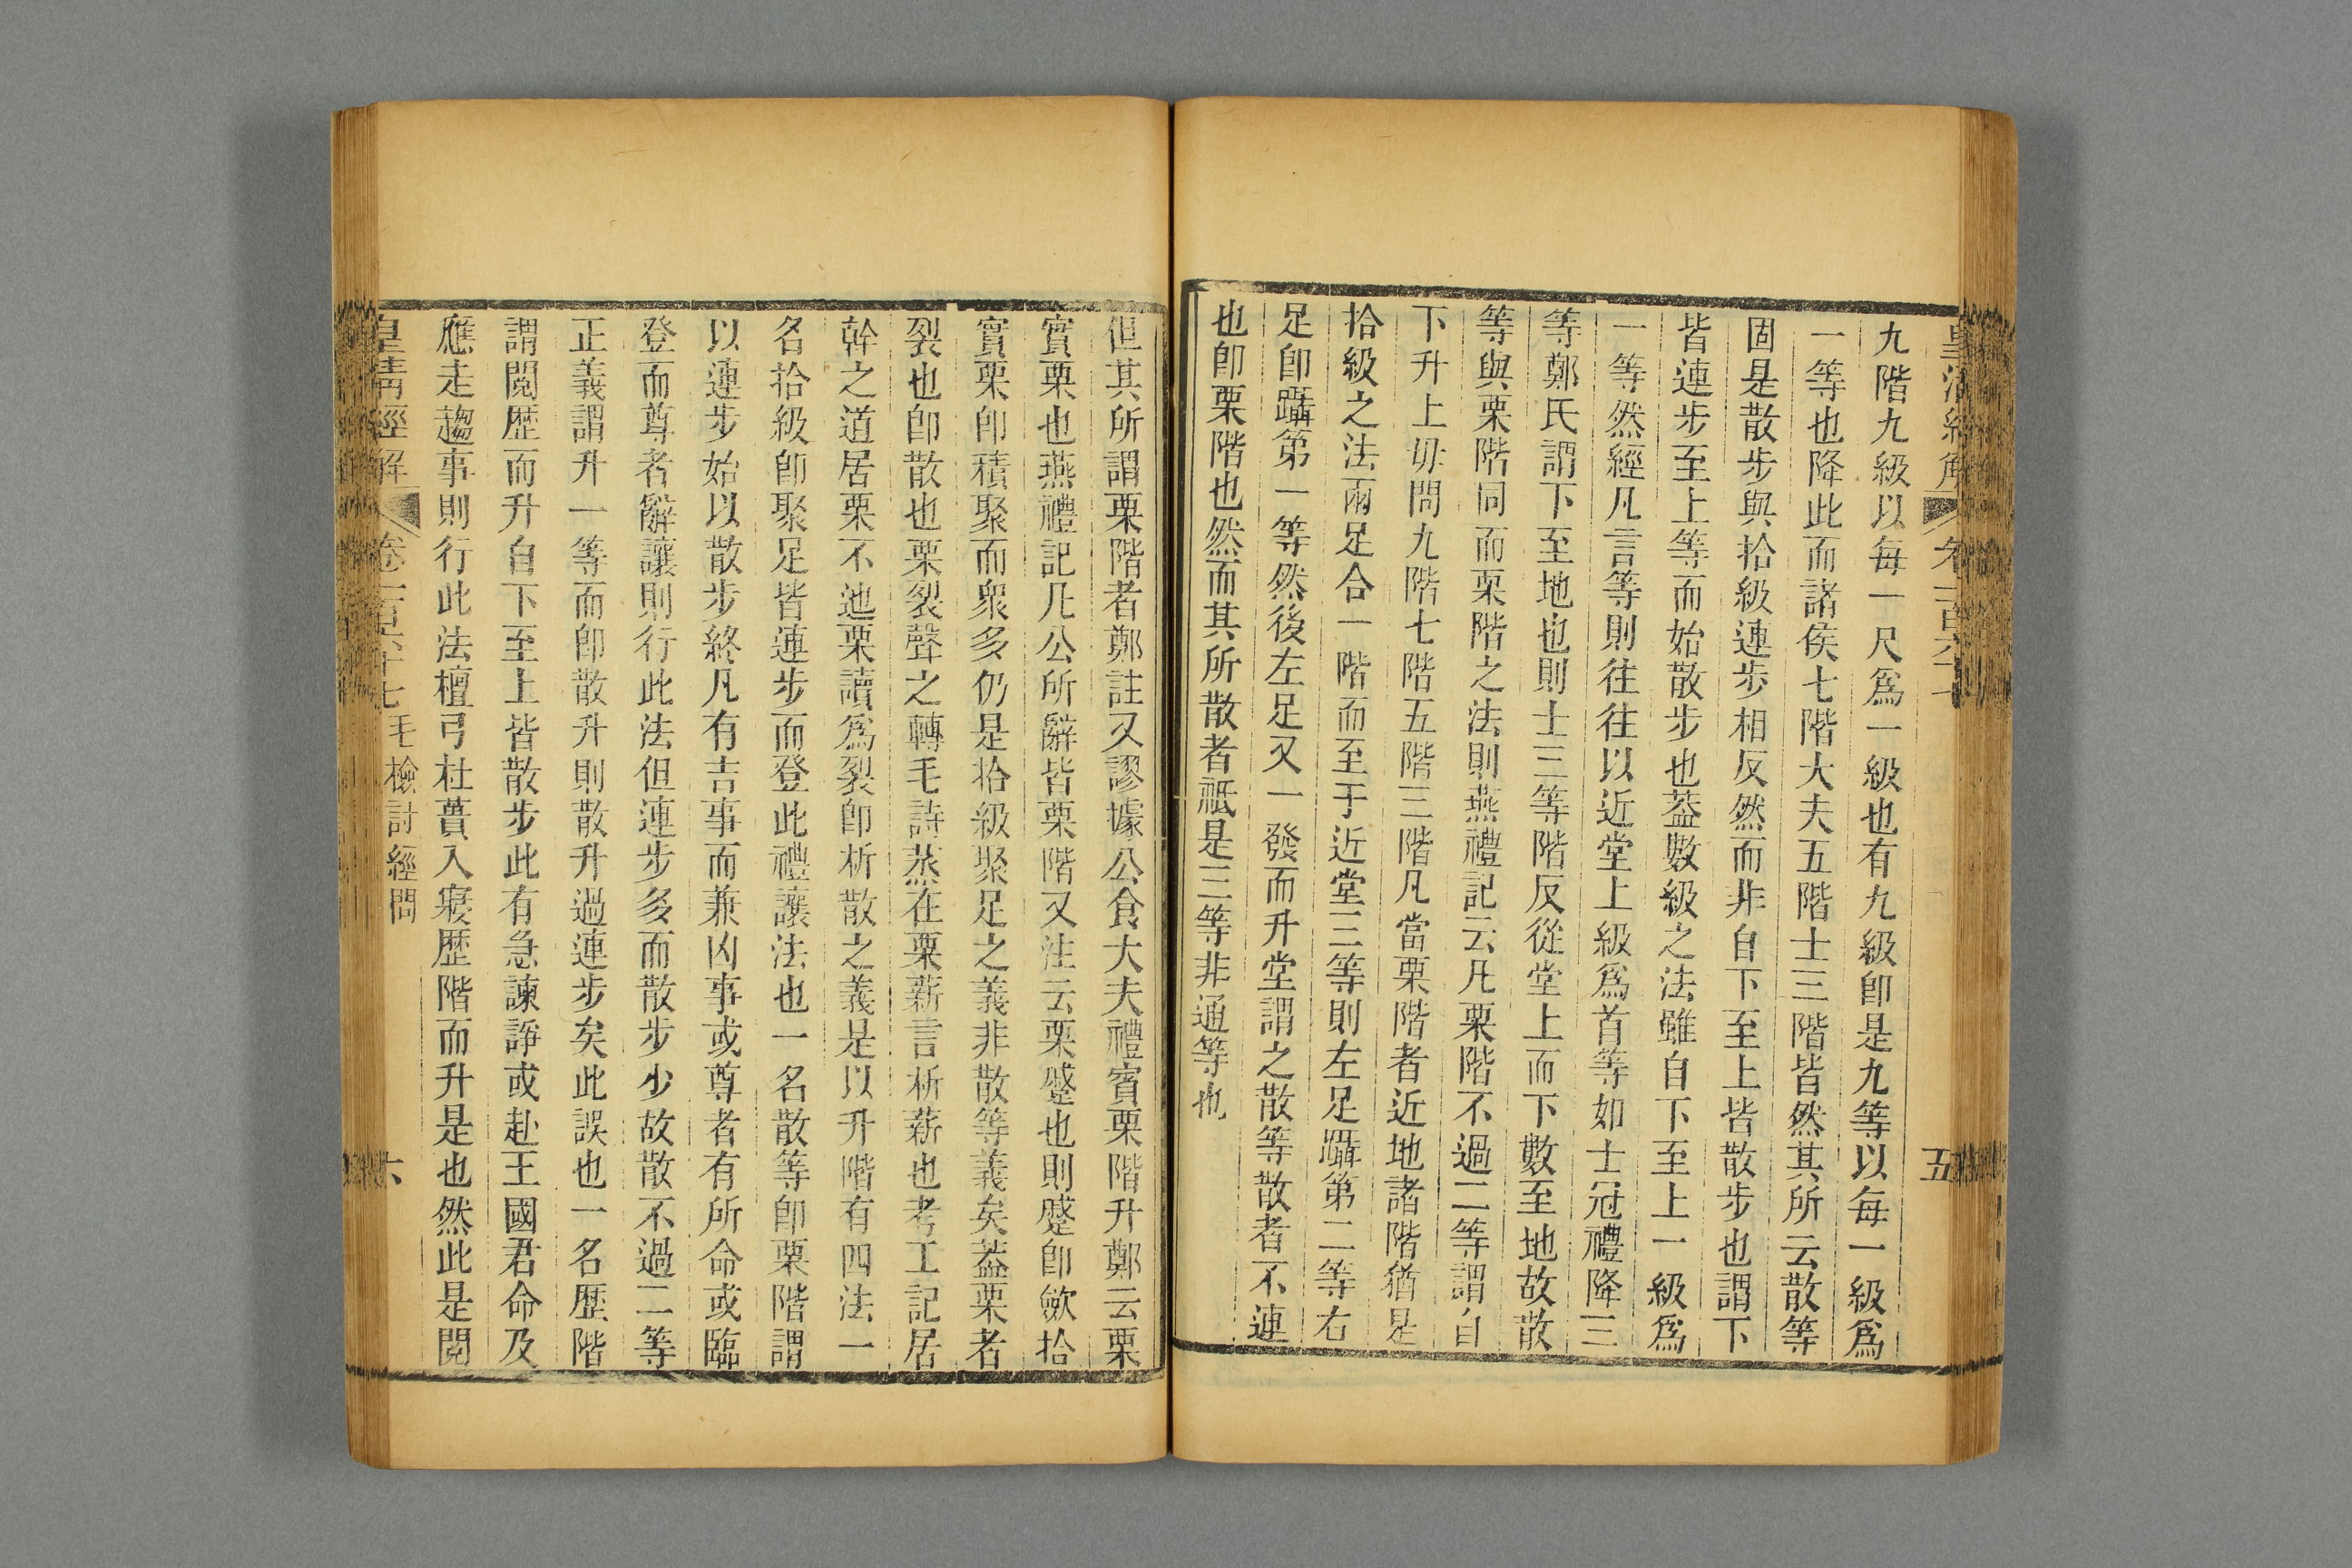 九階九級以每一尺爲一級也有九級卽是九等以每一級爲
一等也降此而諸侯七階大夫五階士三階皆然其所云散等
固是散步與拾級連步相反然而非自下至上皆散步也謂下
皆連步至上等而始散步也葢數級之法雖自下至上一級爲
一等然經凡言等則往往以近堂上級爲首等如士冠禮降三
等鄭氏謂下至地也則士三等階反從堂上而下數至地故散
等與栗階同而栗階之法則燕禮記云凡栗階不過二等謂自
下升上毋問九階七階五階三階凡當栗階者近地諸階猶是
拾級之法兩足合一階而至于近堂三等則左足躡第二等右
足卽躡第一等然後左足又一發而升堂謂之散等散者不連
也卽栗階也然而其所散者祗是三等非通等也
五
但其所謂栗階者鄭註又謬據公食大夫禮賓栗階升鄭云栗
實栗也燕禮記凡公所辭皆栗階又注云栗蹙也則蹙卽歛拾
實栗卽積聚而衆多仍是拾級聚足之義非散等義矣葢栗者
裂也卽散也栗裂聲之轉毛詩烝在栗薪言析薪也考工記居
幹之道居栗不迆栗讀爲裂卽析散之義是以升階有四法一
名拾級卽聚足皆連步而登此禮讓法也一名散等卽栗階謂
以連步始以散步終凡有吉事而兼凶事或尊者有所命或臨
登而尊者辭讓則行此法但連步多而散步少故散不過二等
正義謂升一等而卽散升則散升過連步矣此誤也一名歷階
謂閱歷而升自下至上皆散步此有急諫諍或赴王國君命及
應走趨事則行此法檀弓杜蕢入寢歷階而升是也然此是閱
皇清經解 卷一百六十七 毛檢討經問 六